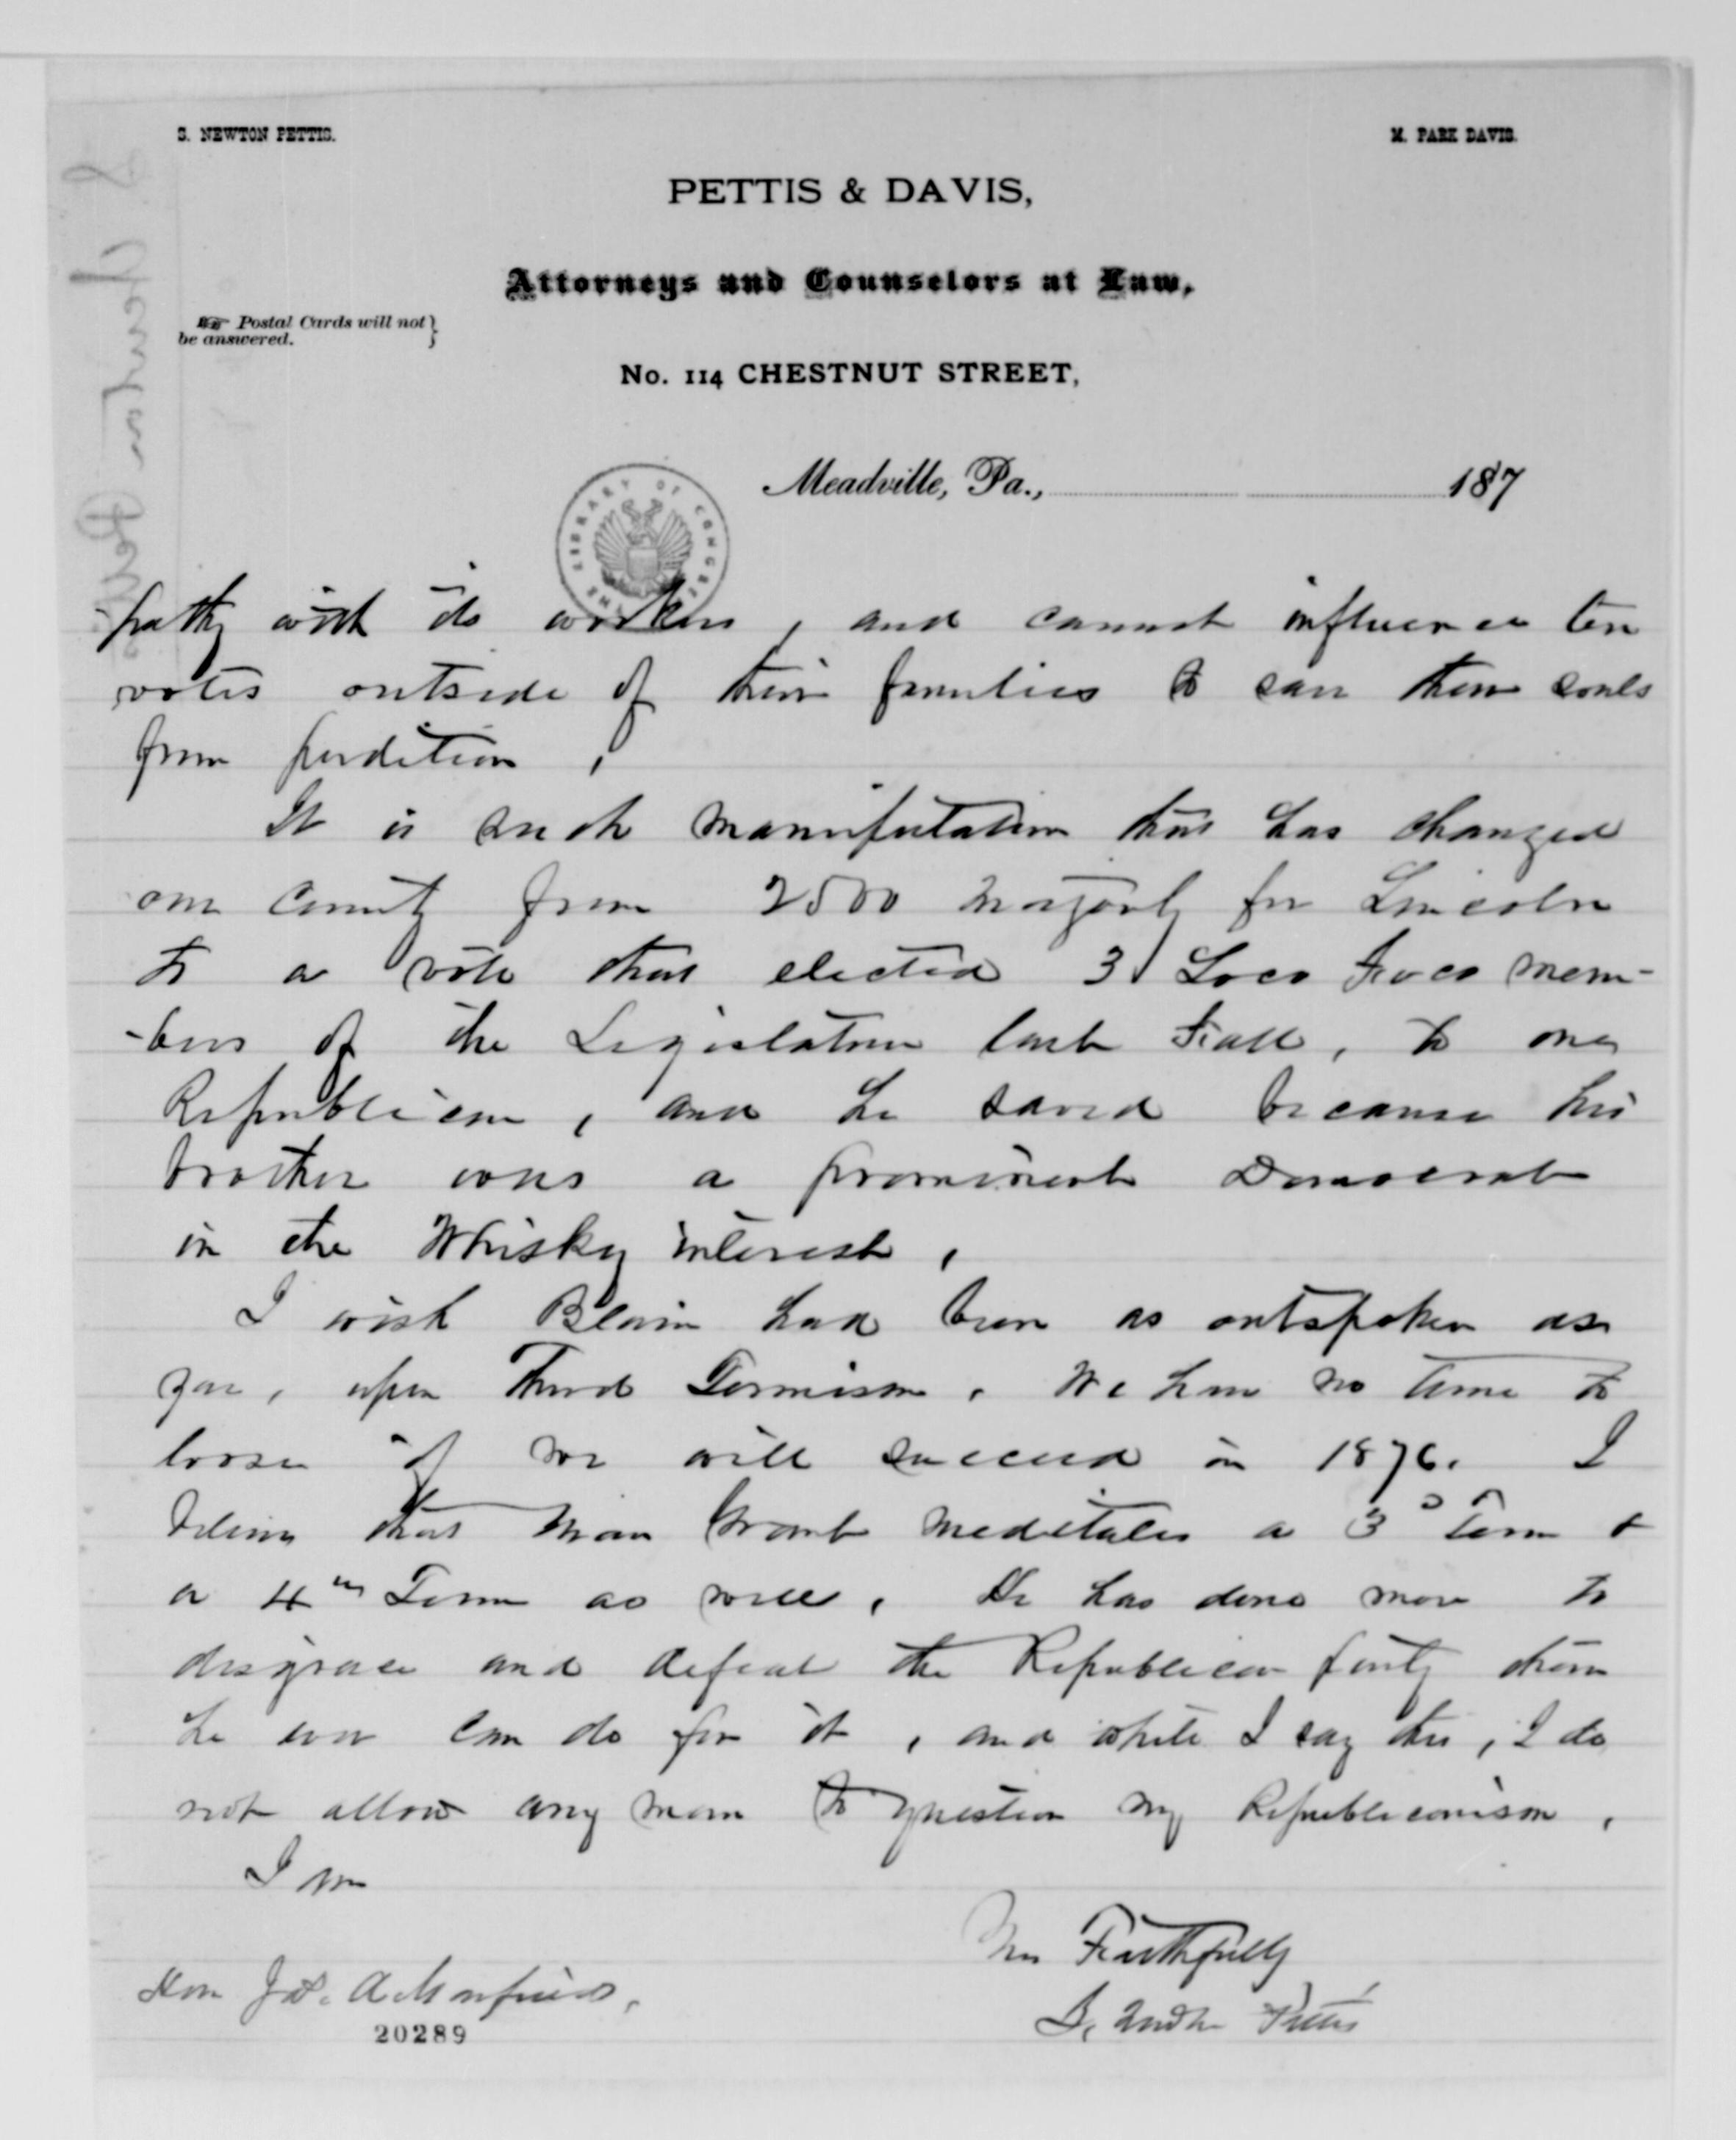 S. NEWTON PETTIS.
M. PARK DAVIS.
PETTIS & DAVIS,
Attorneys and Counselors at Law,
☞ Postal Cards will not
be answered.
No. 114 CHESTNUT STREET,
Meadville, Pa., 187
THE LIBRARY OF CONGRESS
-pathy with its workers, and cannot influence ten
votes outside of their families to save their souls
from perdition,
It is such manipulation that has changed
our County from 2500 majority for Lincoln
to a vote that elected 3 Loco Foco mem-
-bers of the Legislature last Fall, to one
Republican, and he saved because his
brother was a prominent Democrat
in the Whisky interest,
I wish Blain had been as outspoken as
you, upon Third Termism. We have no time to
loose if we will succeed in 1876. I
believe that man Grant meditates a 3d Term &
a 4th Term as well, He has done more to
disgrace and defeat the Republican party than
he ever can do for it, and while I say this, I do
not allow any man to question my Republicanism,
I am
Faithfully
Hon Jas. A Garfield,
S. Newton Pettis
20289
S Newton Pettis